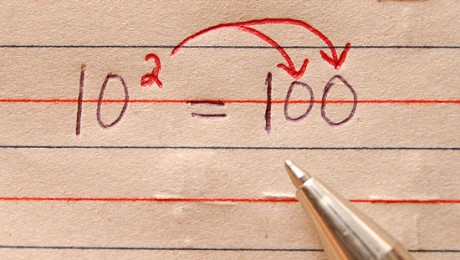 10² = 100